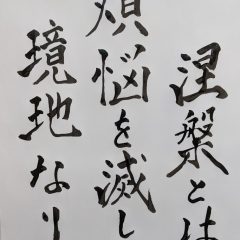 涅槃とは
煩悩を滅し
境地なり